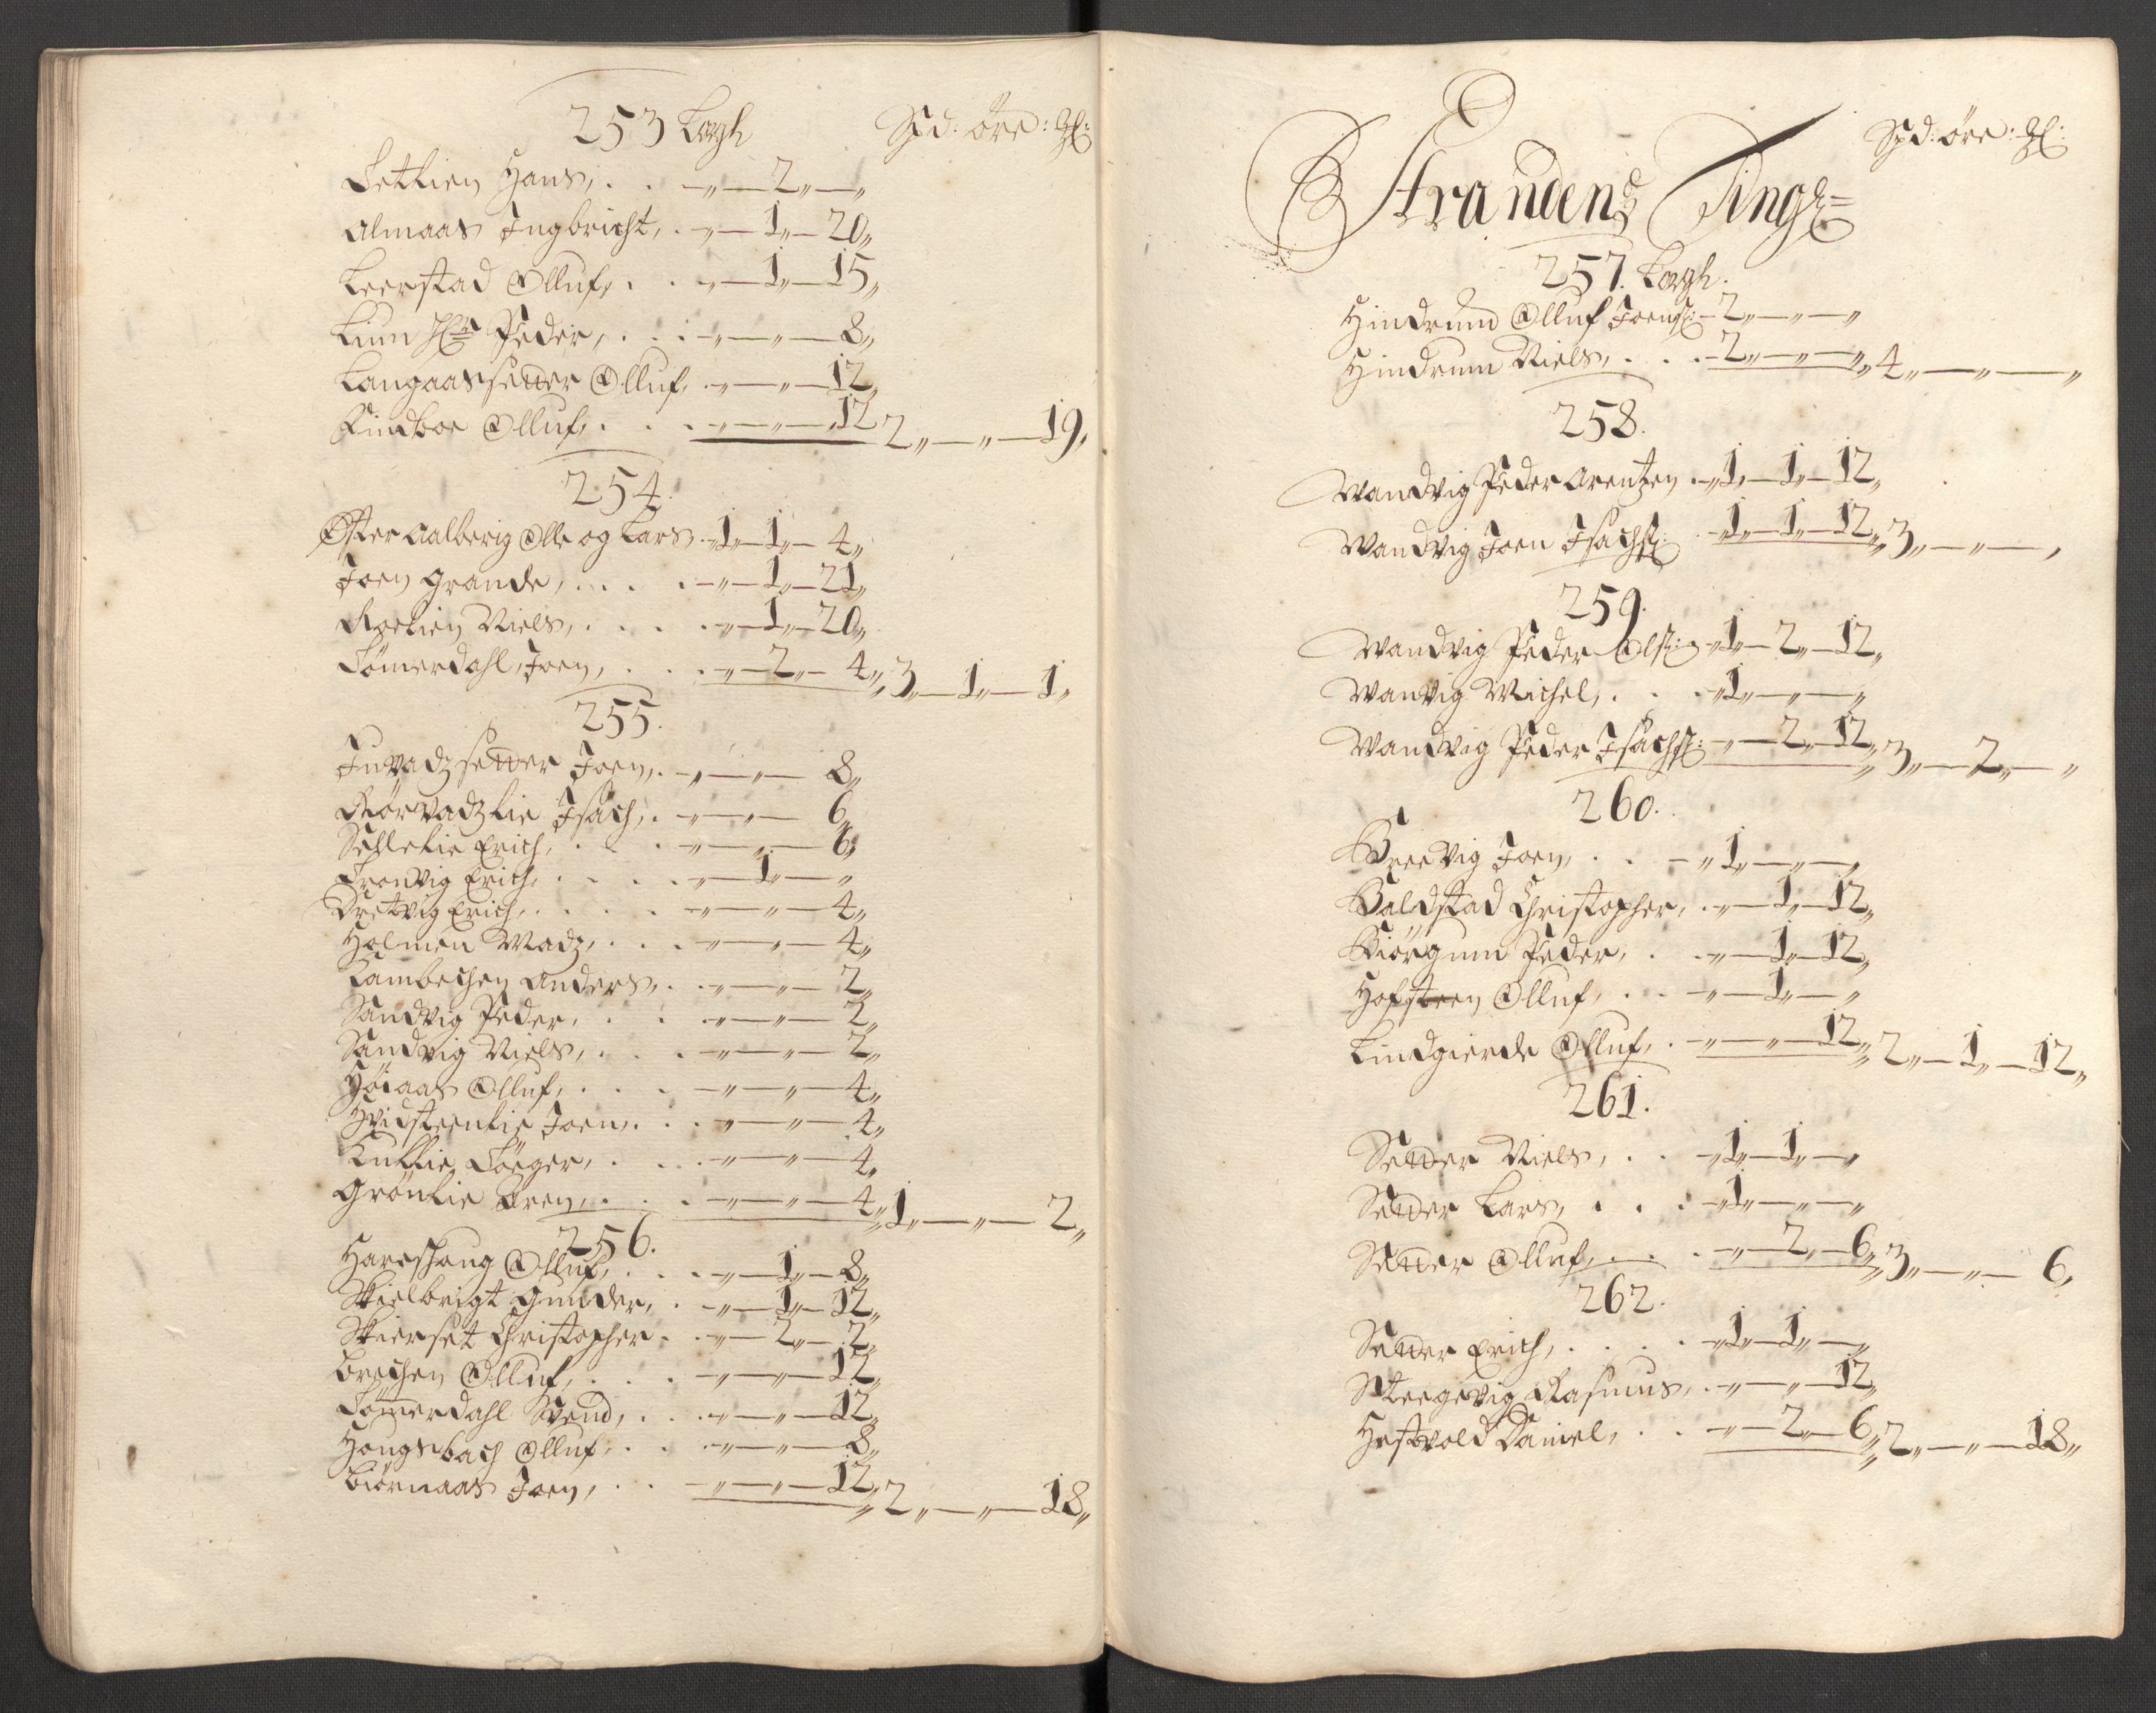 253 Lægh Spd: öre: gl:
Lethien Hans, . . -„-2„-„
Almaas Ingbricht, . -„-1„-20„
Leerstad Olluf, . . -„-1„-15„
Lium Hr Peder, . . . -„-„-8„
Langaassetter Olluf, . -„-„-12„
Rindboe Olluf, . . . -„-„-12 2„-„-19„
254.
Øster Aalberig Olle og Lars -1„-1„-4„
Joen Grande, . . . . -„-1„-21„
Roelien Niels, . . . . -„-1„-20„
Sömerdahl, Joen, . . . -„-2„-4„ 3„-1„-1„
255.
Juvadzsetter Joen, . -„-„-8„
Rörvadzlie Isach, . -„-„-6„
Selletlie Erich, . . . -„-„-6„
Tronvig Erich, . . . . -„-1„-„
Dretvig Erich, . . . . -„-„-4„
Holmen Madz, . . . -„-„-4„
Lambechen Anders, . . -„-„-2„
Sandvig Peder, . . . -„-„-2„
Sandvig Niels, . . . -„-„-2„
Høiaas Olluf, . . . -„-„-4„
Hvidsteenlie Joen, . . . -„-„-4„
Kullie Börger, . . . . -„-„-4„
Grönlie Oren, . . . -„-„-4„ 1„-„-2„
256.
Hareshaug Olluf, . . . -„-1„-8„
Skielbrigt Gunder, . -„-1„-12„
Skierset Christopher . . -„-2„-2„
Brechen Olluf, . . . -„-„-12„
Sömerdahl Svend, . . . -„-„-12„
Hougsbach Olluf, . . -„-„-8„
Biörnaas Joen, . . . -„-„-12„ 2„-„-18„
Spd: öre: gl:
Strandens Tingl=
257. Lægh.
Hindrum Olluf Joens: -2„-„-„
Hindrum Niels, . . . -2„-„-„ 4„-„-„
258.
Wandvig Peder Arentzen . -1„-1„-12„
Wandvig Joen Isachs: . -1„-1„-12„ 3„-„-„
259.
Wandvig Peder Ols: -1„-2„-12„
Wanvig Michel, . . . -1„-„-„
Wandvig Peder Isachs: -„-2„-12„ 3„-2„-„
260.
Breevig Joen, . . -„1„-„-„
Baldstad Christopher, . -„-1„-12„
Biörgum Peder, . . -„-1„-12„
Hofsteen Olluf, . . . -„-1„-„
Lindgierde Olluf, . -„-„-12„ 2„-1„-12„
261.
Setter Niels, . . -1„-1„-„
Setter Lars, . . . -1„-„-„
Setter Olluf, . . . -„-2„-6„ 3„-„-6„
262.
Setter Erich, . . . . -1„-1„-„
Steegevig Rasmus, . -„-„-12„
Hestvold Daniel, . . -„-2„-6„ 2„-„-18„